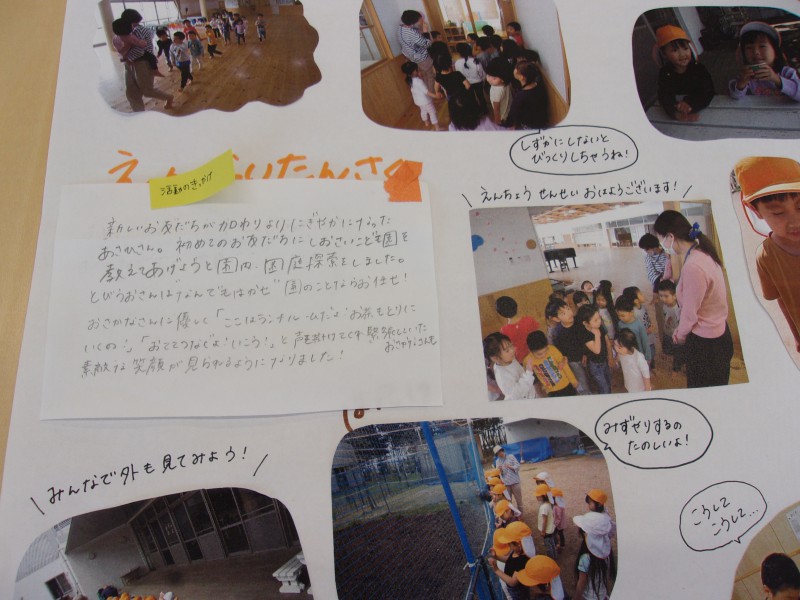 しずかにしないと
びっくりしちゃうね!
えんないたんさく
活動のきっかけ
えんちょうせんせいおはようございます!
新しいお友だちが加わりよりにぎやかになった
あさひさん。初めてのお友だちにしおさいこども園を
教えてあげようと園内、園庭探索をしました。
とびうおさんは"なんでもまかせて"園のことならお任せ!
おさかなさんに優しく「ここはランチルームだよ!お茶もとりに
いくの!」「おててつなごよ!いこう!」と声を掛けてくれ緊張していた
おさかなさんも
素敵な笑顔が見られるようになりました!
みずやりするの
たのしいよ!
みんなで外も見てみよう!
こうして
こうして…